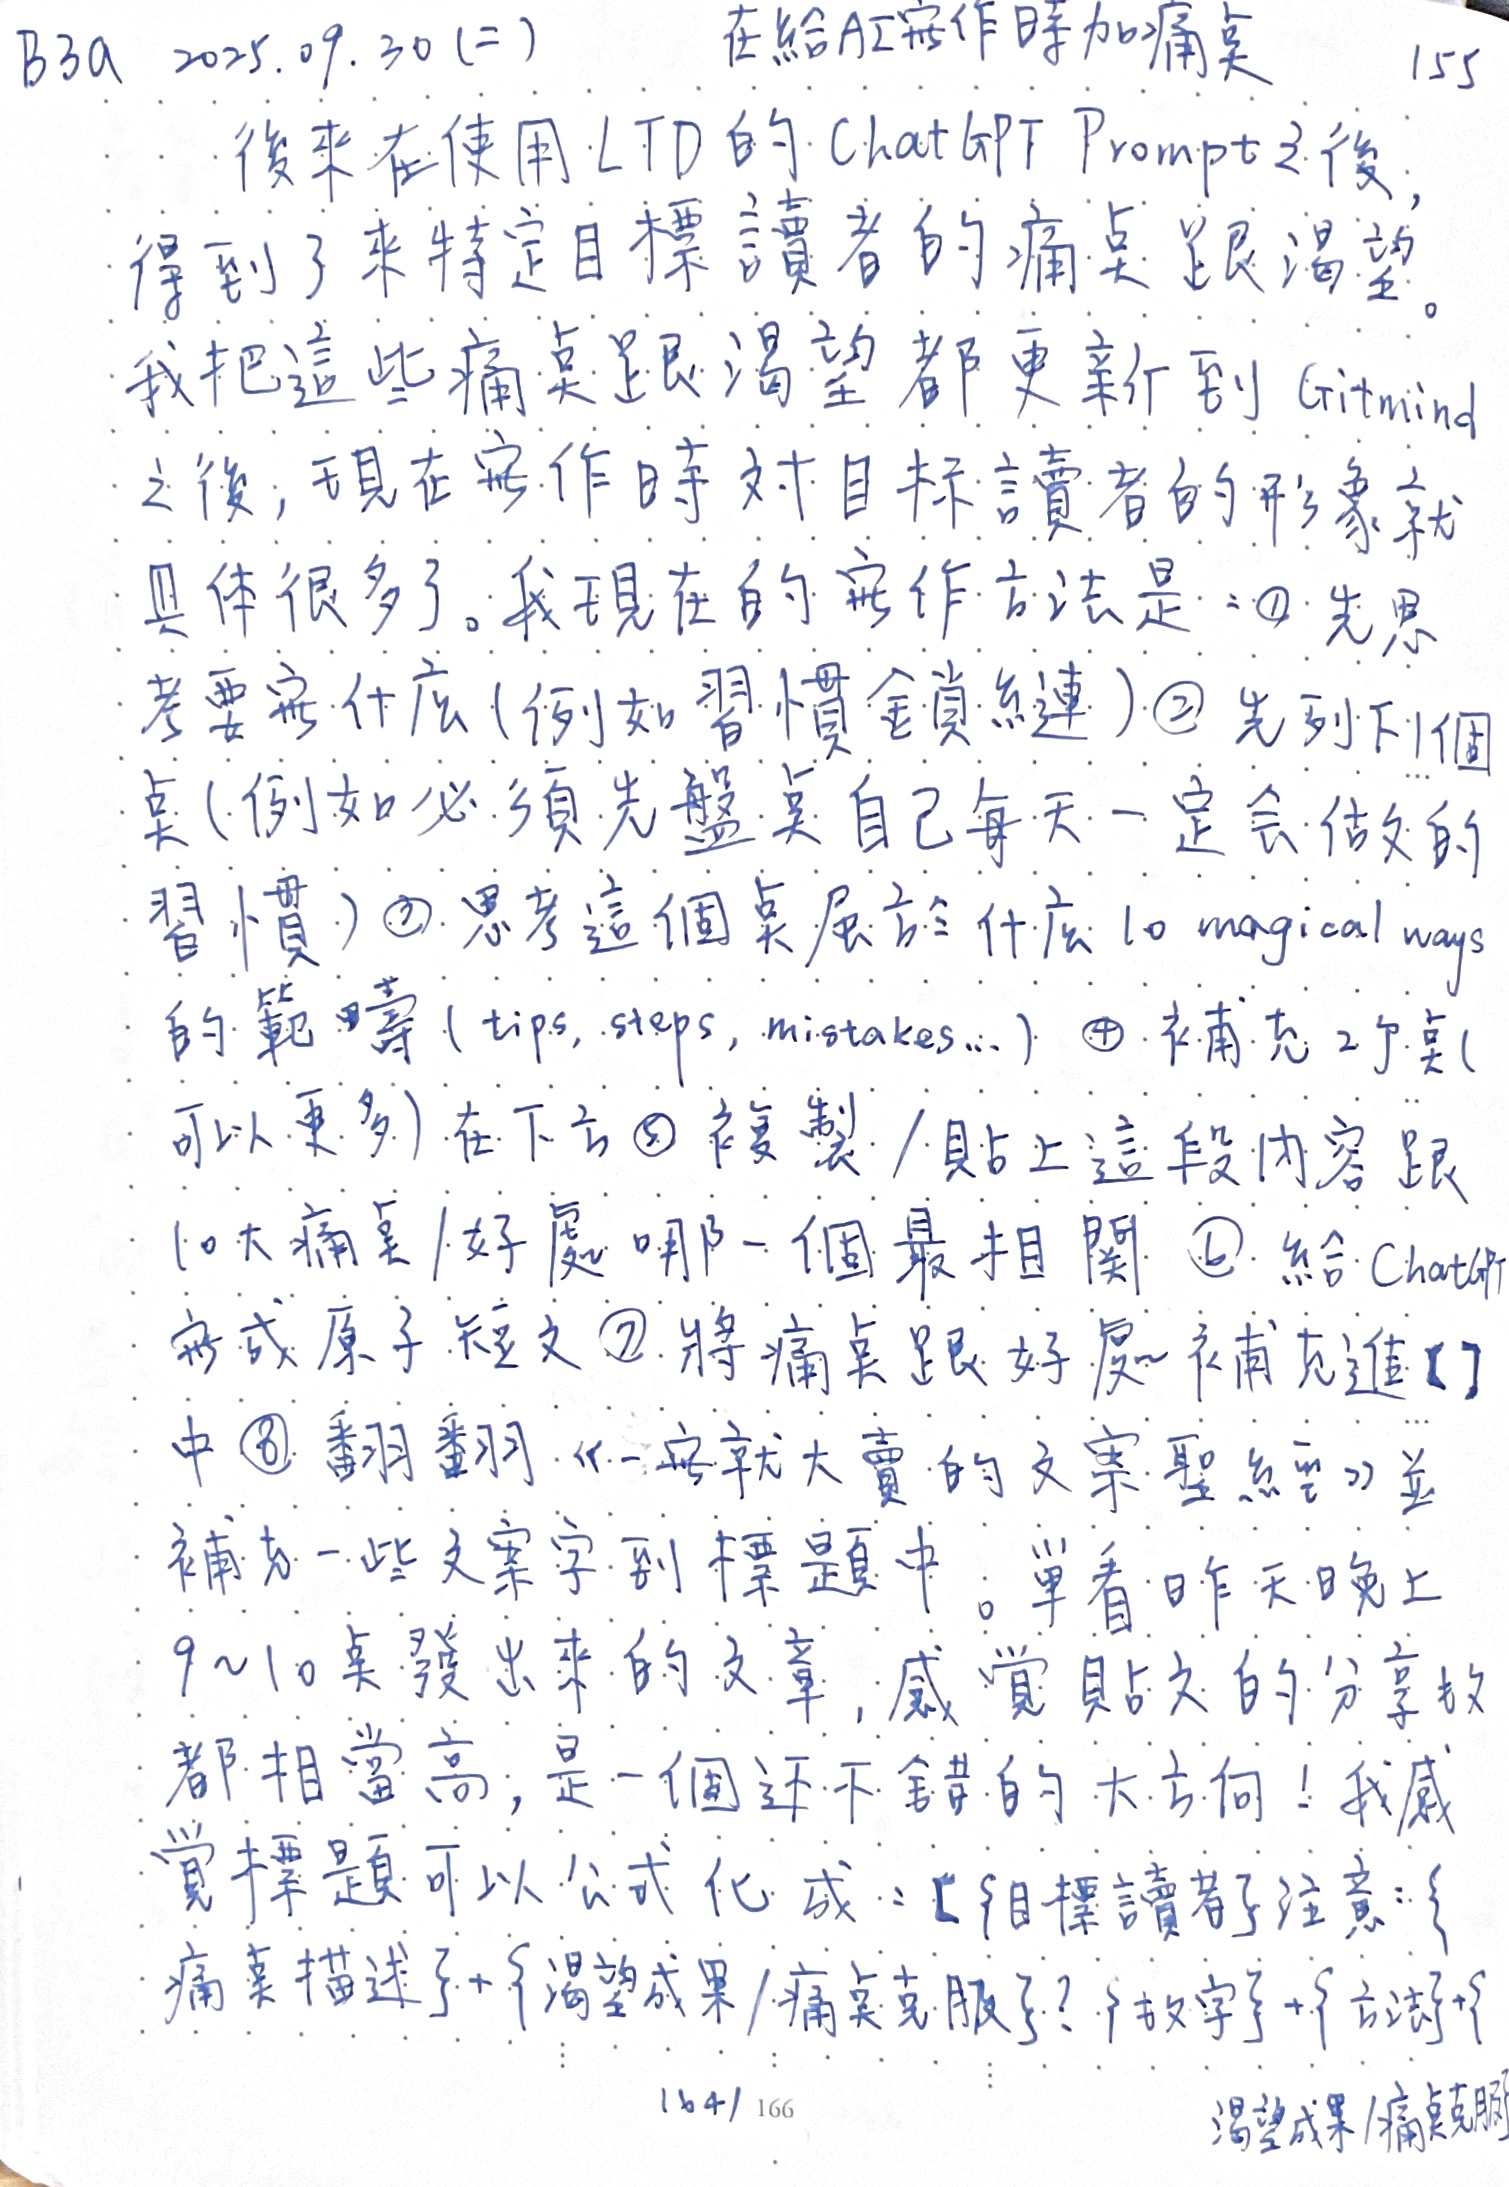 B3a 2025.09.30(二) 在給AI寫作時加痛点 155
後來在使用LTD的ChatGPT Prompt之後,
得到了來特定目標讀者的痛点跟渴望。
我把這些痛点跟渴望都更新到Gitmind
之後,現在寫作時对目标讀者的形象就
具体很多了。我現在的寫作方法是:①先思
考要寫什麼(例如習慣鎖鏈)②先列下1個
点(例如必須先盤点自己每天一定会做的
習慣)③思考這個点屬於什麼10 magical ways
的範疇(tips, steps, mistakes...)④補充2个点(
可以更多)在下方⑤複製/貼上這段內容跟
10大痛点/好處哪一個最相関⑥給ChatGPT
寫成原子短文⑦將痛点跟好處補充進【】
中⑧翻翻《一寫就大賣的文案聖經》並
補充一些文案字到標題中。單看昨天晚上
9~10点發出來的文章,感覚貼文的分享数
都相當高,是一個还不錯的大方向!我感
覚標題可以公式化成:【{目標讀者}注意:{
痛点描述}+{渴望成果/痛点克服}?{数字}+{方法}+{
渴望成果/痛点克服}
164/166